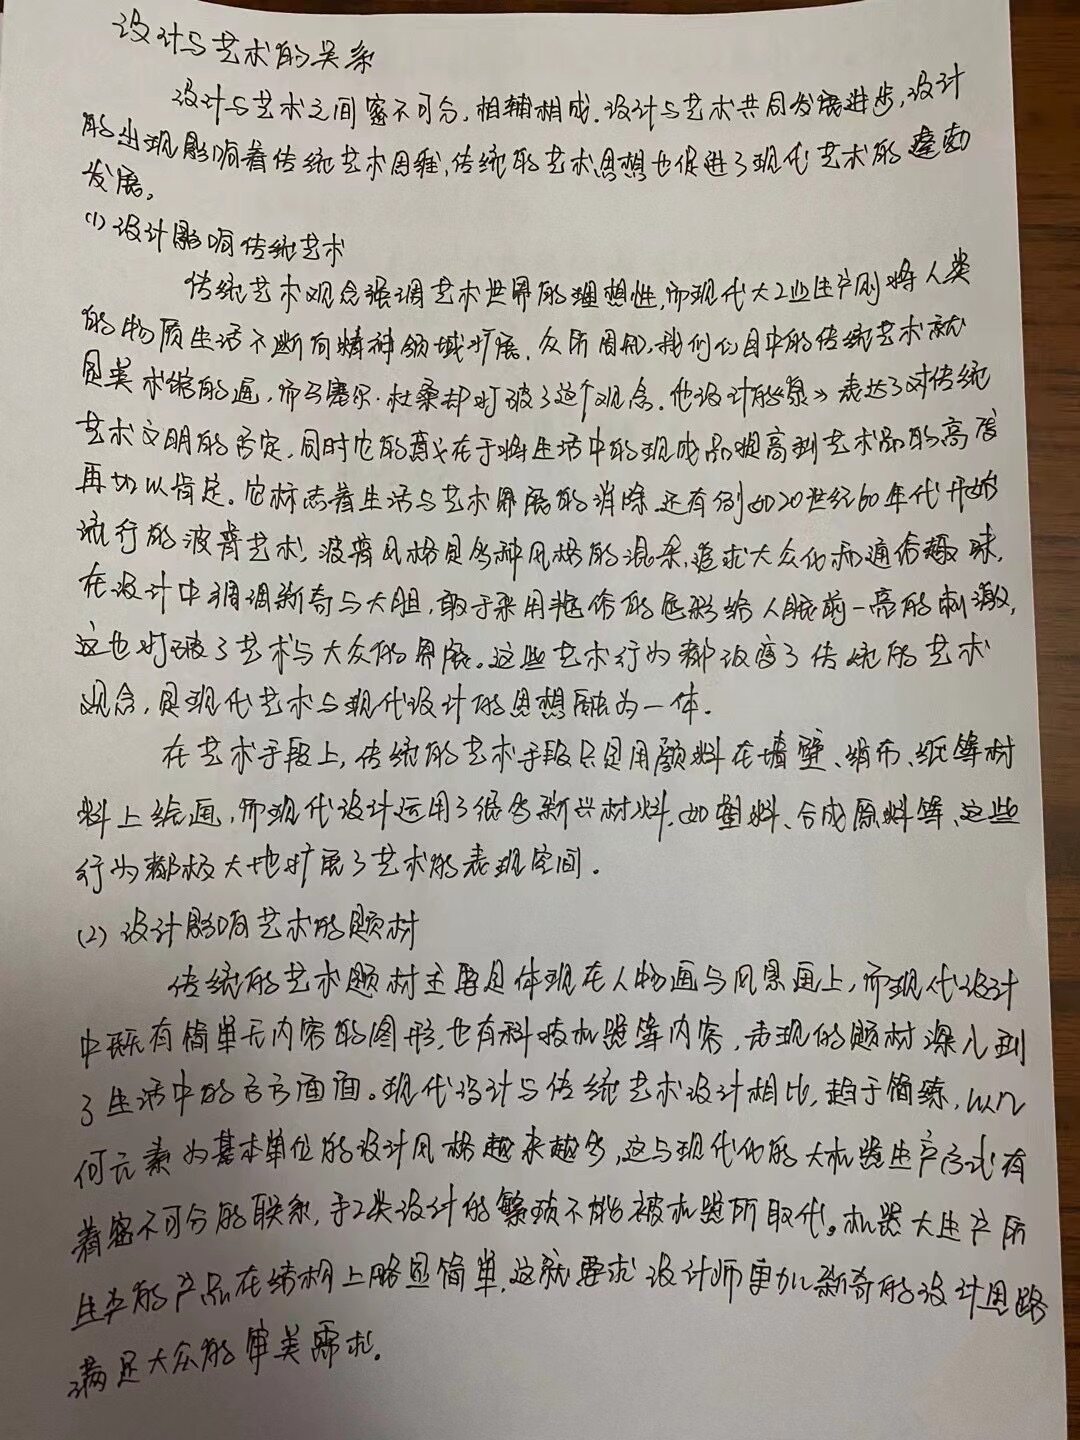 设计与艺术的关系
设计与艺术之间密不可分,相辅相成.设计与艺术共同发展进步,设计
的出现影响着传统艺术思维,传统的艺术思想也促进了现代艺术的蓬勃
发展。
(1)设计影响传统艺术
传统艺术观念强调艺术世界的理想性,而现代大工业生产则将人类
的物质生活不断向精神领域扩展.众所周知,我们心目中的传统艺术就
是美术馆的画,而马塞尔·杜桑却打破了这个观念.他设计的《泉》表达了对传统
艺术文明的否定,同时它的意义在于将生活中的现成品提高到艺术品的高度
再加以肯定.它标志着生活与艺术界限的消除.还有例如20世纪60年代开始
流行的波普艺术,波普风格是多种风格的混杂,追求大众化和通俗趣味,
在设计中强调新奇与大胆,敢于采用艳俗的色彩给人眼前一亮的刺激,
这也打破了艺术与大众的界限。这些艺术行为都改变了传统的艺术
观念,是现代艺术与现代设计的思想融为一体.
在艺术手段上,传统的艺术手段只是用颜料在墙壁、绢布、纸等材
料上绘画,而现代设计运用了很多新兴材料.如塑料、合成原料等、这些
行为都极大地扩展了艺术的表现空间.
(2)设计影响艺术的题材
传统的艺术题材主要是体现在人物画与风景画上,而现代设计
中既有简单无内容的图形,也有科技机器等内容,表现的题材深入到
了生活中的方方面面。现代设计与传统艺术设计相比,趋于简练,以几
何元素为基本单位的设计风格越来越多,这与现代化的大机器生产方式有
着密不可分的联系,手工类设计的繁琐不能被机器所取代。机器大生产所
生产的产品在结构上略显简单,这就要求设计师更加新奇的设计思路
满足大众的审美需求.